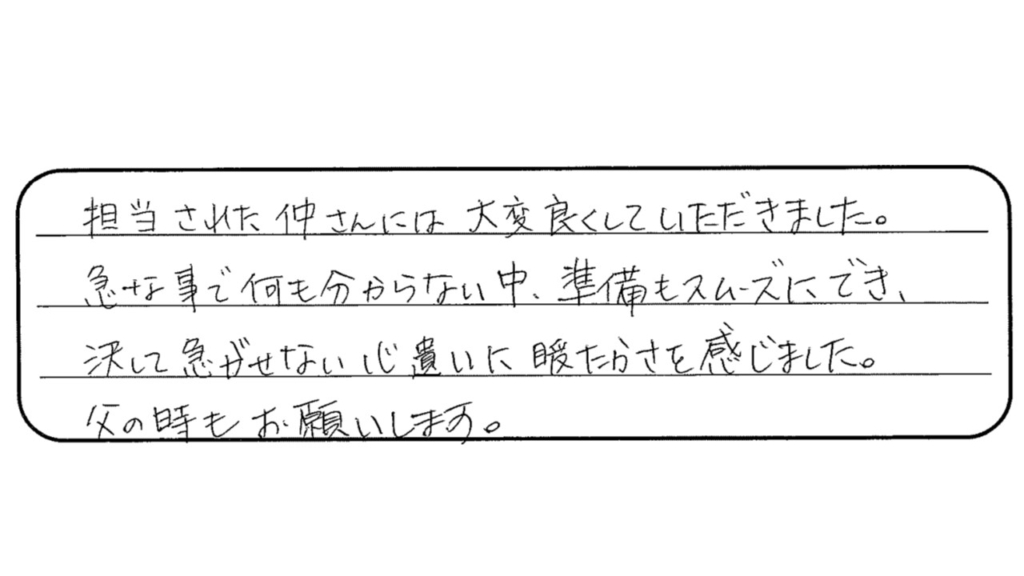 担当された仲さんには大変良くしていただきました。
急な事で何も分からない中、準備もスムーズにでき、
決して急がせない心遣いに暖たかさを感じました。
父の時もお願いします。